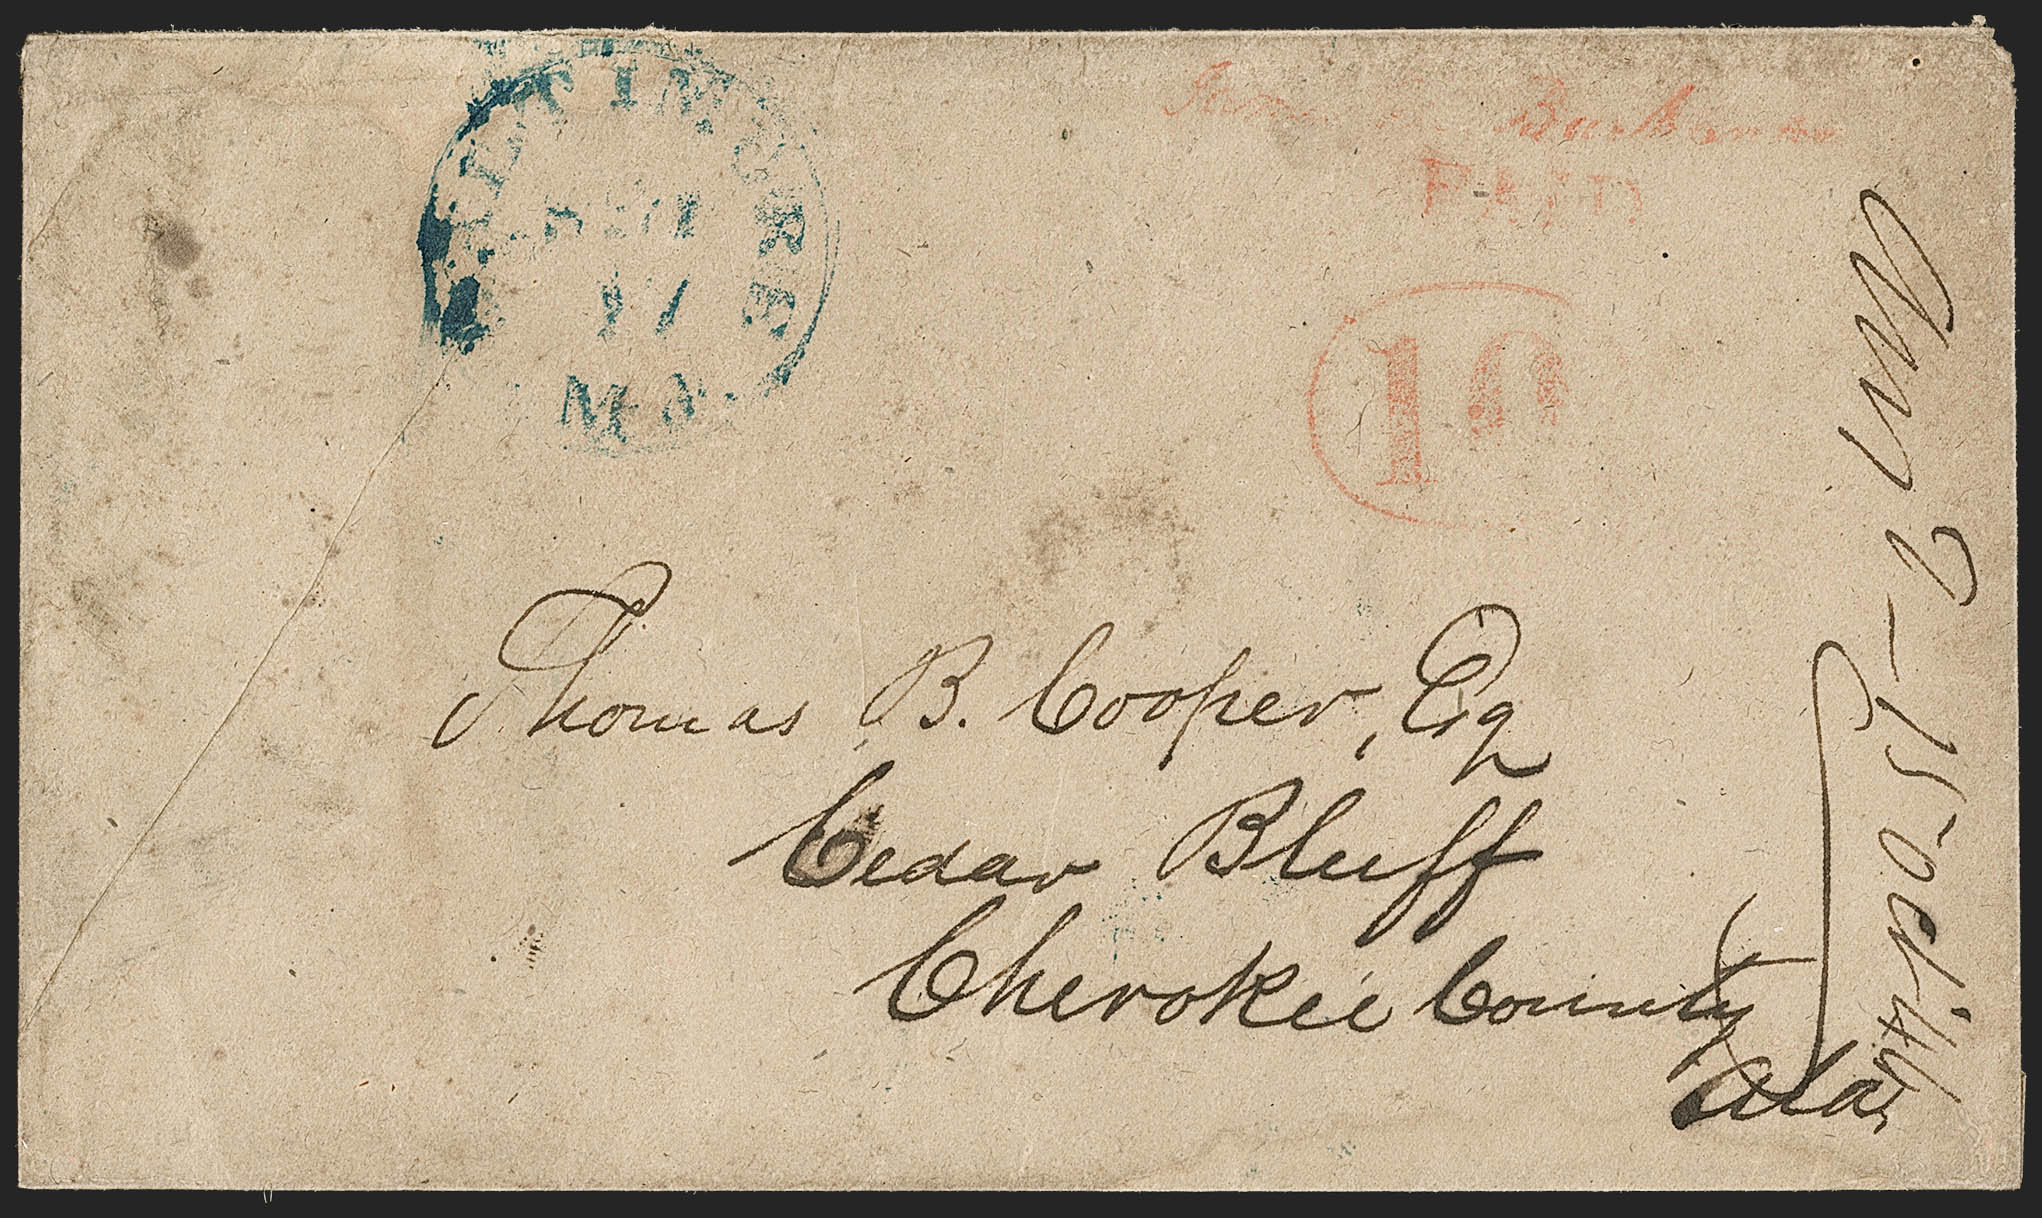 BALTIMORE
17
MD.
Buchanan
PAID
10
Thomas B. Cooper, Esq
Cedar Bluff
Cherokee County
Ala,